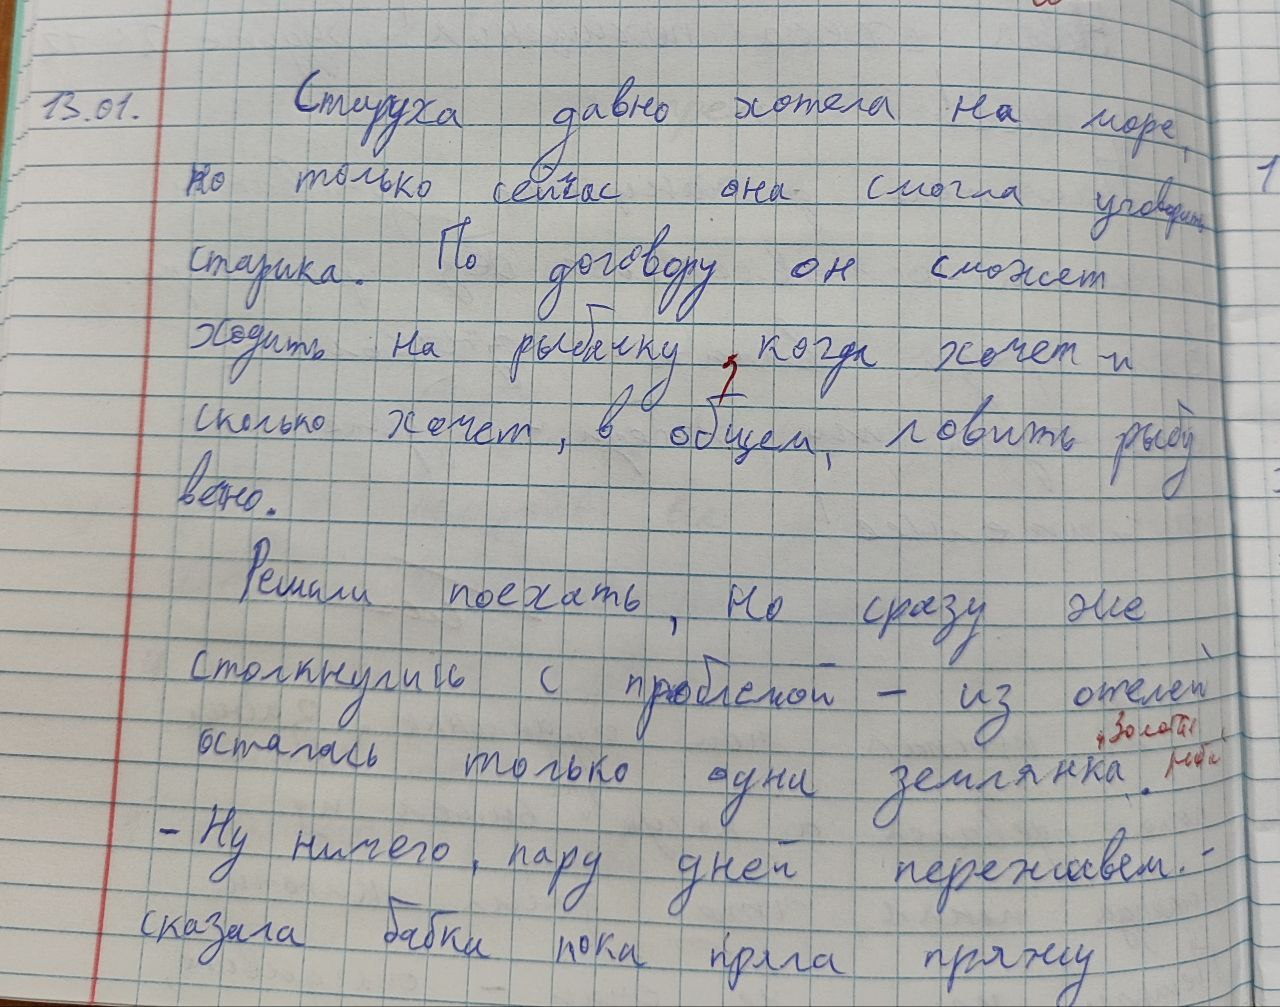 13.01. Старуха давно хотела на море,
но только сейчас она смогла уговорить
старика. По договору он сможет
ходить на рыбачку, когда хочет и
сколько хочет, в общем, ловить рыбу
вечно.
Решили поехать, но сразу же
столкнулись с проблемой – из отелей
осталась только одна землянка.
- Ну ничего, пару дней переживем. -
сказала бабка пока пряла пряжу